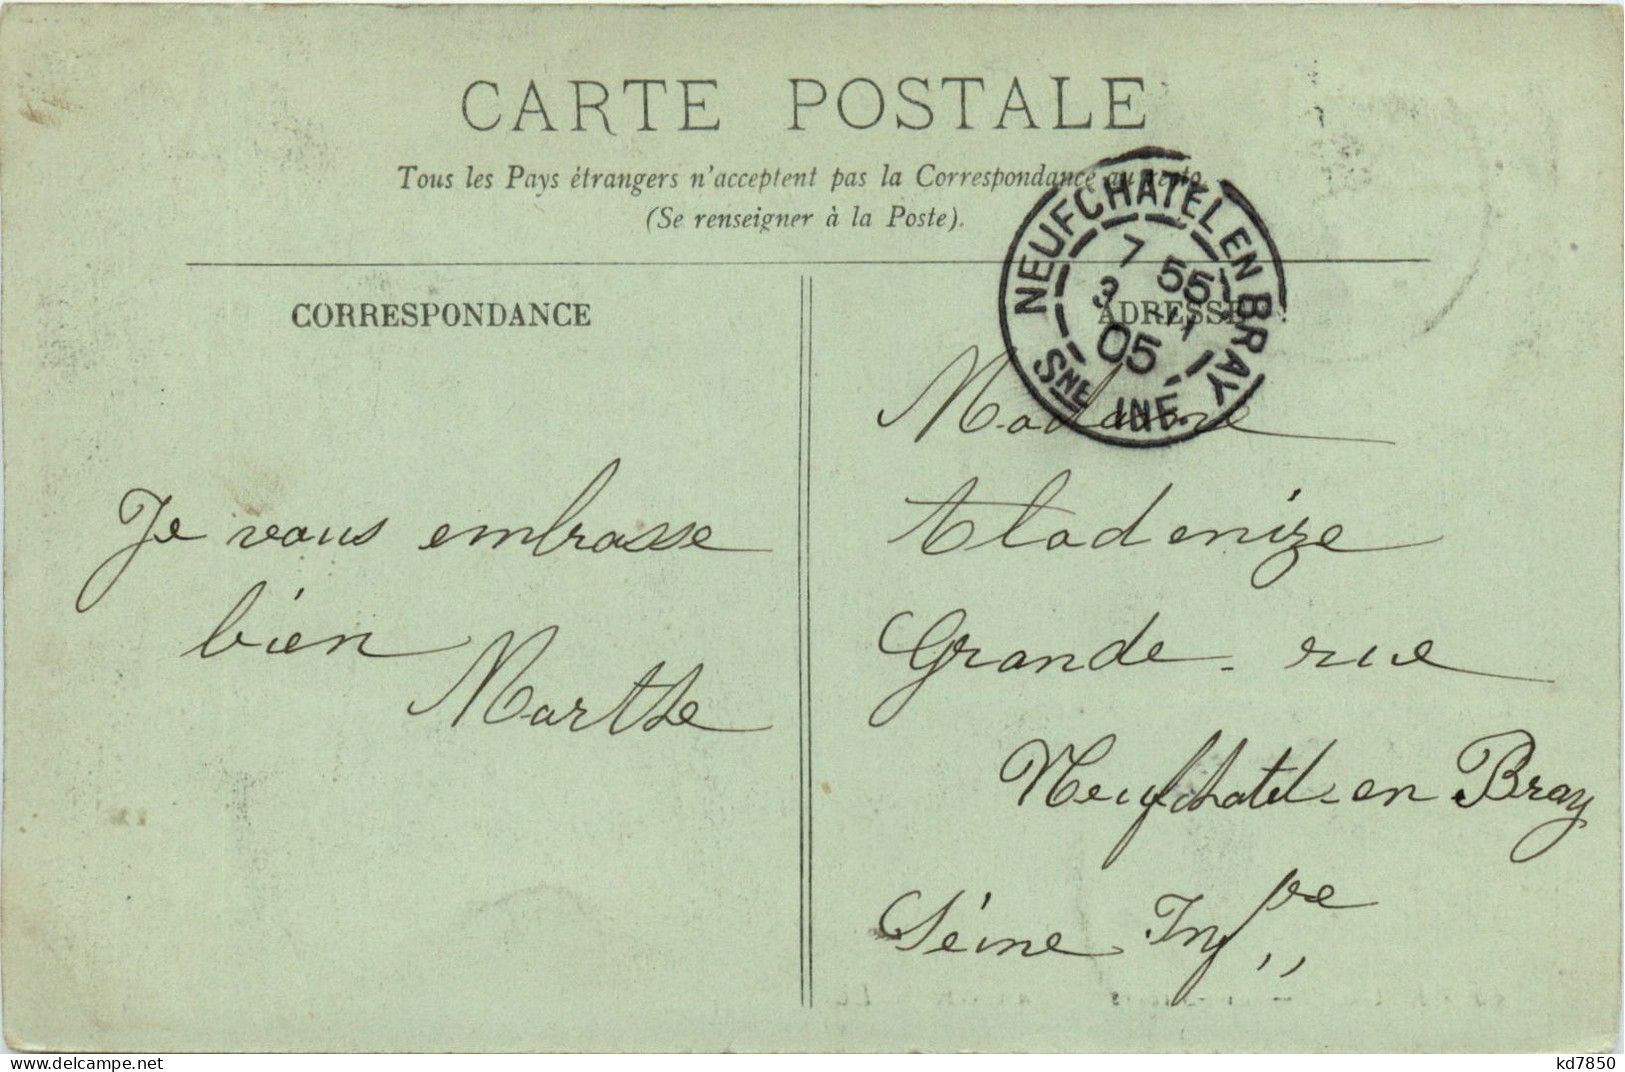 CARTE POSTALE
Tous les Pays étrangers n'acceptent pas la Correspondance au recto.
(Se renseigner à la Poste).
NEUFCHATEL EN BRAY
7 55
3
05
SNE INF.
CORRESPONDANCE
ADRESSE
Je vous embrasse
bien
Marthe
Madame
Grande-rue
Neufchatel-en Bray
Séine Infre
www.delcampe.net
kd7850